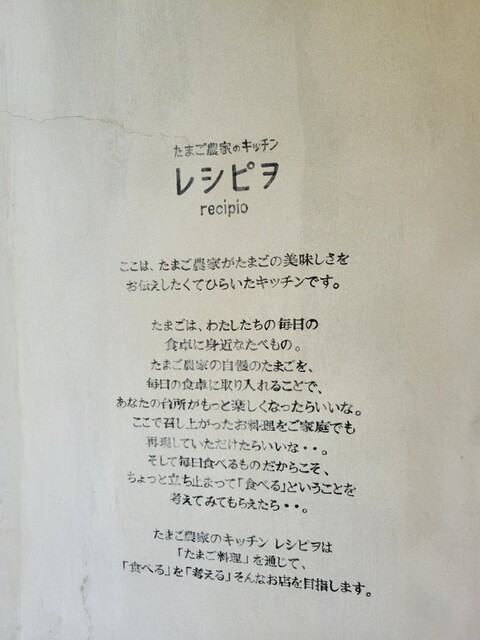 たまご農家のキッチン
レシピヲ
recipio
ここは、たまご農家がたまごの美味しさを
お伝えしたくてひらいたキッチンです。
たまごは、わたしたちの毎日の
食卓に身近なたべもの。
たまご農家の自慢のたまごを、
毎日の食卓に取り入れることで、
あなたの台所がもっと楽しくなったらいいな。
ここで召し上がったお料理をご家庭でも
再現していただけたらいいな・・。
そして毎日食べるものだからこそ、
ちょっと立ち止まって「食べる」ということを
考えてみてもらえたら・・。
たまご農家のキッチン レシピヲは
「たまご料理」を通じて、
「食べる」を「考える」そんなお店を目指します。